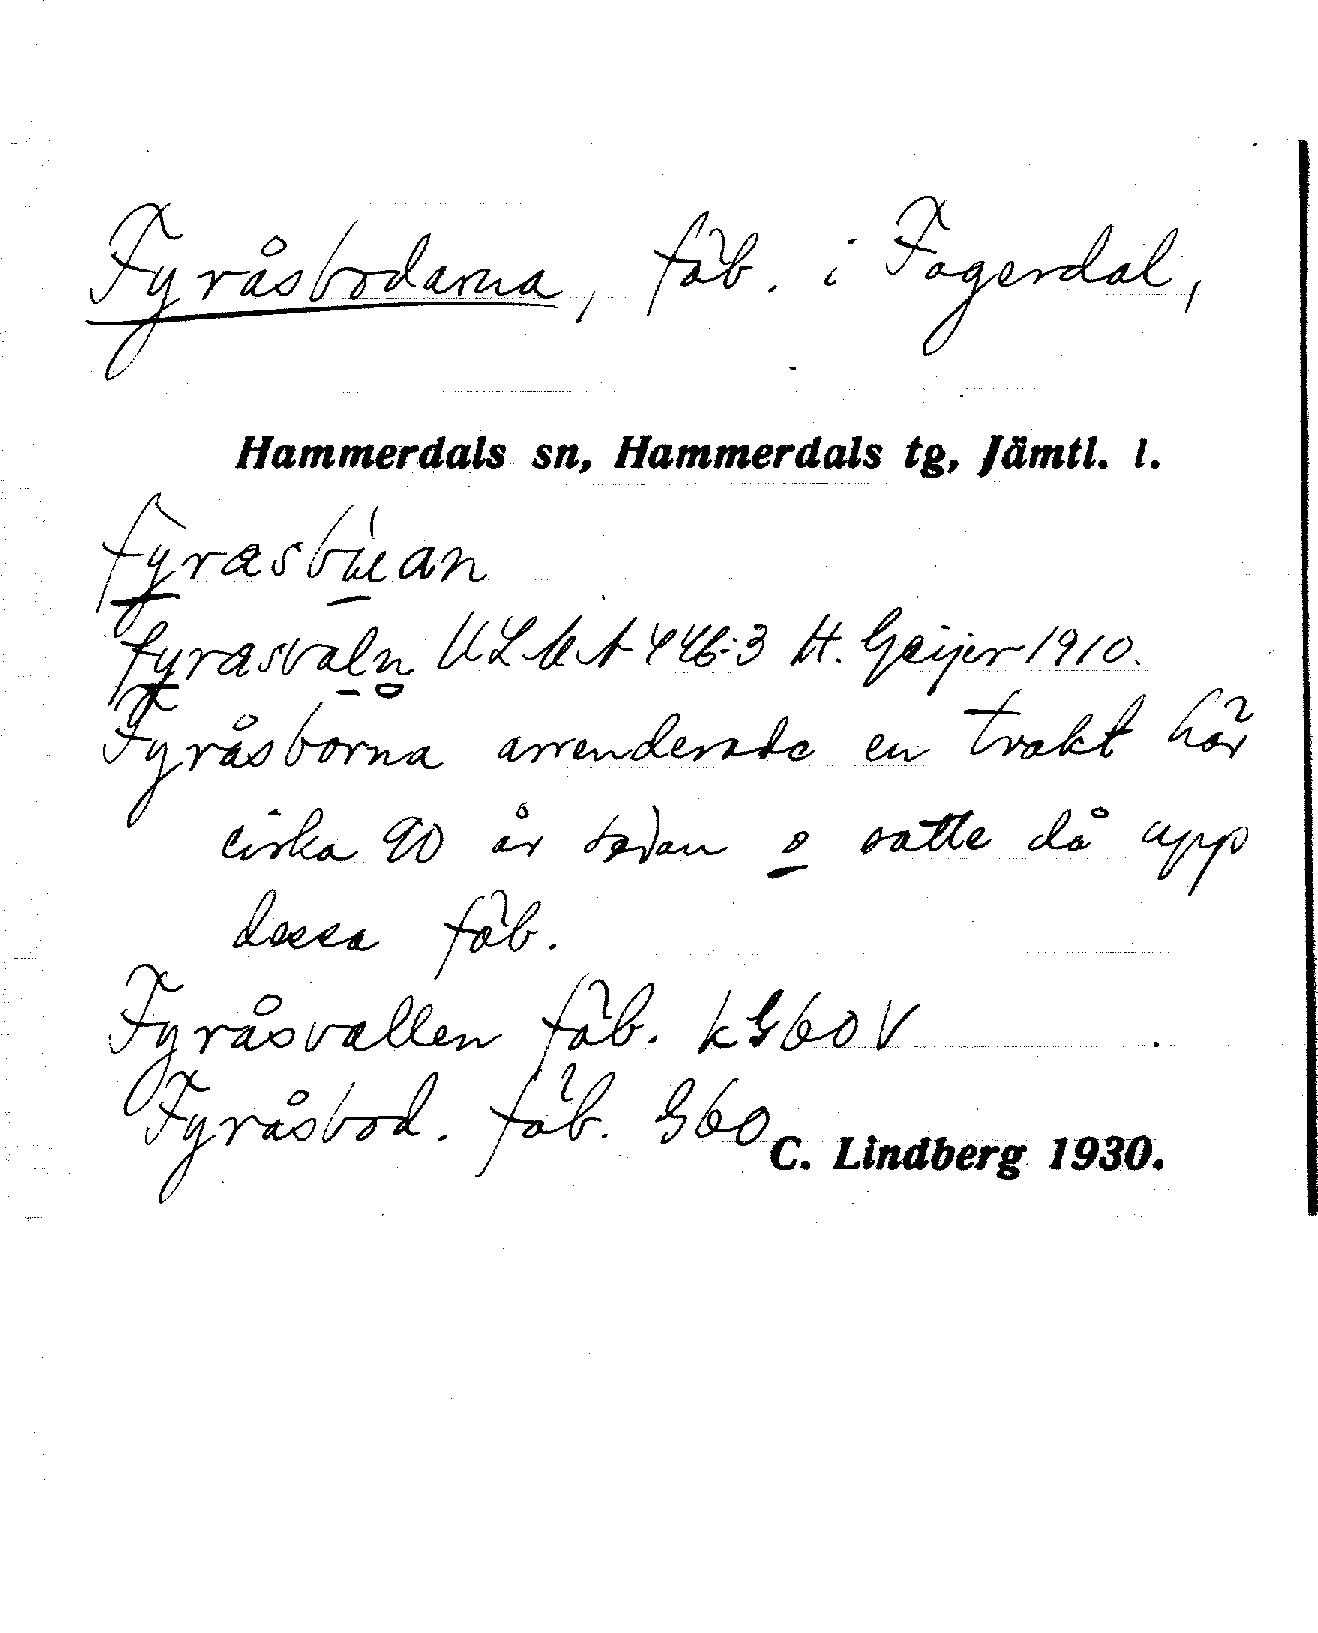 Fyråsbodarna, fäb. i Fagerdal,
Hammerdals sn, Hammerdals tg, Jämtl. l.
fyrasvaln ULMA 446:3 H. Geijer 1910.
Fyråsborna arrenderade en trakt här
cirka 90 år sedan o satte då upp
dessa fäb.
Fyråsvallen fäb. k G60V
Fyråsbod. fäb. G60
C. Lindberg 1930.